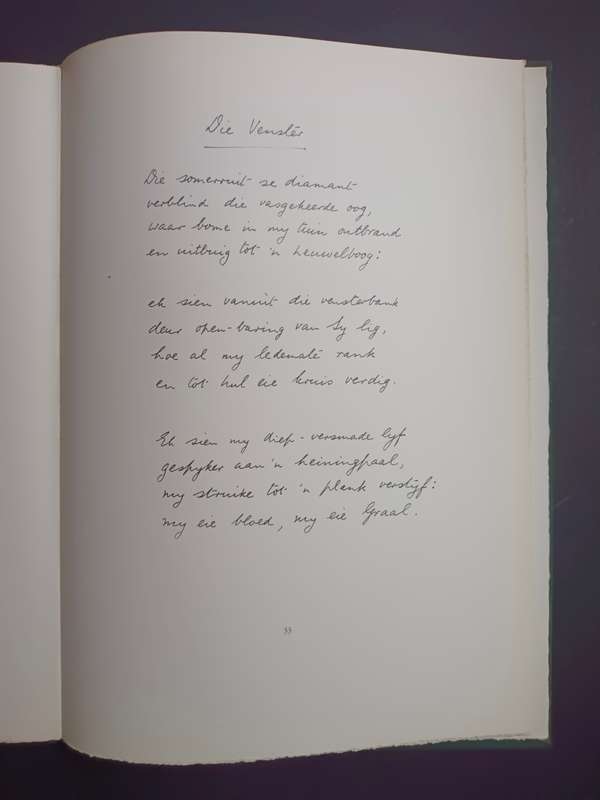 Die Venster
Die somerruit se diamant
verblind die vasgekeerde oog,
waar bome in my tuin ontbrand
en uitbuig tot 'n heuwelboog:
ek sien vanuit die vensterbank
deur open-baring van Sy lig,
hoe al my ledemate rank
en tot hul eie kruis verdig.
Ek sien my diep-versmade lyf
gespyker aan 'n heiningpaal,
my struike tot 'n plank verstyf:
my eie bloed, my eie Graal.
33